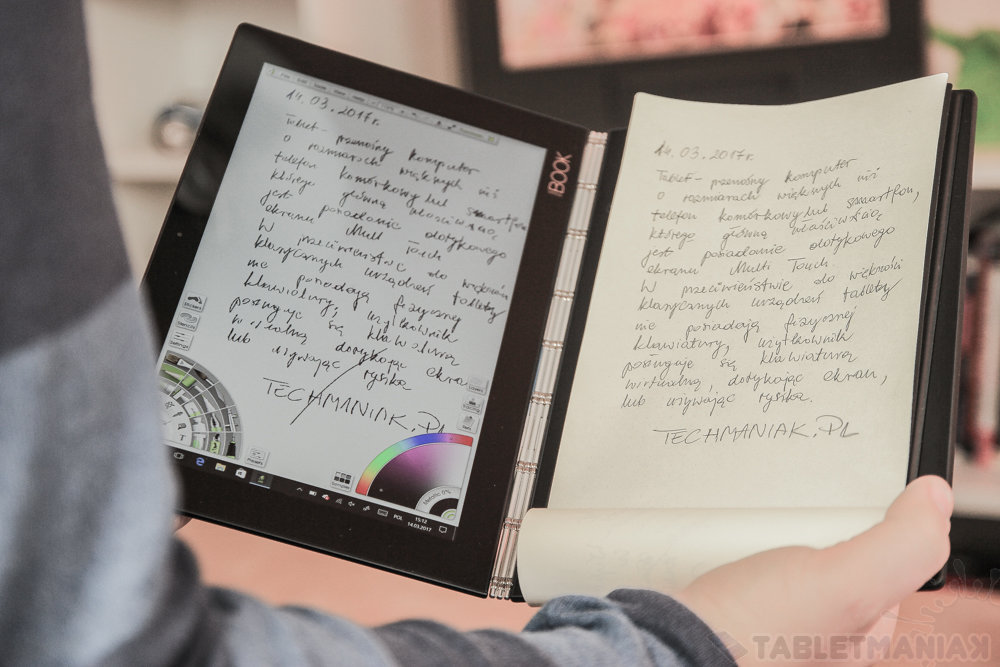 14.03.2017r.
Tablet - przenośny komputer
o rozmiarach większych niż
telefon komórkowy lub smartfon,
którego główną właściwością
jest posiadanie dotykowego
ekranu Multi Touch.
W przeciwieństwie do większości
klasycznych urządzeń tablety
nie posiadają fizycznej
klawiatury, użytkownik
posługuje się klawiaturą
wirtualną, dotykając ekran
lub używając rysika
TECHMANIAK.PL
Metallic 0%
POL
15:12
14.03.2017
YOGA BOOK
14.03.2017r.
Tablet - przenośny komputer
o rozmiarach większych niż
telefon komórkowy lub smartfon,
którego główną właściwością
jest posiadanie dotykowego
ekranu Multi Touch.
W przeciwieństwie do większości
klasycznych urządzeń tablety
nie posiadają fizycznej
klawiatury, użytkownik
posługuje się klawiaturą
wirtualną, dotykając ekran,
lub używając rysika.
TECHMANIAK.PL
TABLETMANIAK